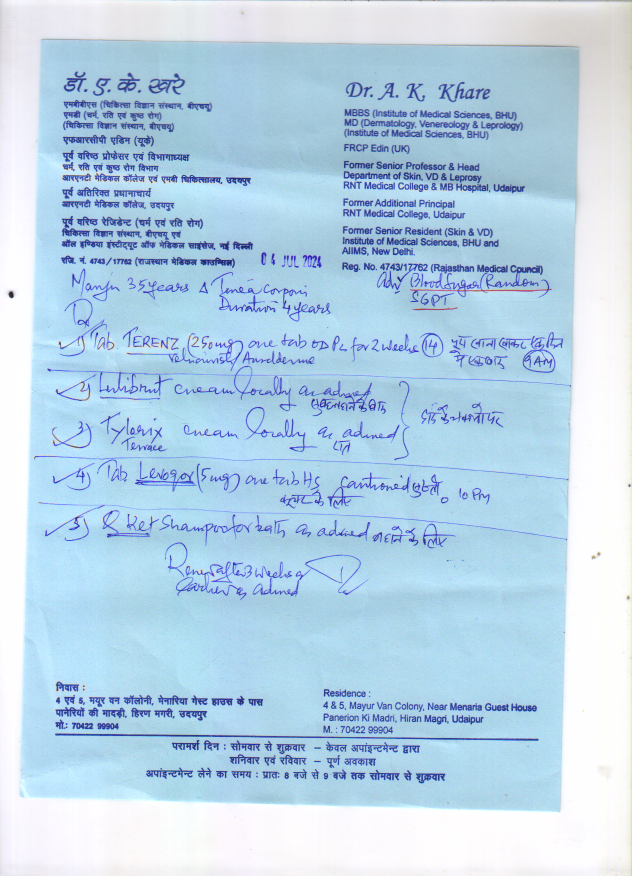 डॉ. ए. के. खरे
एमबीबीएस (चिकित्सा विज्ञान संस्थान, बीएचयू)
एमडी (चर्म, रति एवं कुष्ठ रोग)
(चिकित्सा विज्ञान संस्थान, बीएचयू)
एफआरसीपी एडिन (यूके)
पूर्व वरिष्ठ प्रोफेसर एवं विभागाध्यक्ष
चर्म, रति एवं कुष्ठ रोग विभाग
आरएनटी मेडिकल कॉलेज एवं एमबी चिकित्सालय, उदयपुर
पूर्व अतिरिक्त प्रधानाचार्य
आरएनटी मेडिकल कॉलेज, उदयपुर
पूर्व वरिष्ठ रेजिडेन्ट (चर्म एवं रति रोग)
चिकित्सा विज्ञान संस्थान, बीएचयू एवं
ऑल इण्डिया इंस्टीट्यूट ऑफ मेडिकल साइंसेज, नई दिल्ली
रजि. नं. 4743 / 17762 (राजस्थान मेडिकल काउन्सिल)
Dr. A. K. Khare
MBBS (Institute of Medical Sciences, BHU)
MD (Dermatology, Venereology & Leprology)
(Institute of Medical Sciences, BHU)
FRCP Edin (UK)
Former Senior Professor & Head
Department of Skin, VD & Leprosy
RNT Medical College & MB Hospital, Udaipur
Former Additional Principal
RNT Medical College, Udaipur
Former Senior Resident (Skin & VD)
Institute of Medical Sciences, BHU and
AIIMS, New Delhi.
Reg. No. 4743/17762 (Rajasthan Medical Council)
04 JUL 2024
Manju 35 years Δ Tinea Corporis
Duration 4 years
Adv Blood Sugar (Random)
SGPT
1) Tab. TERENZ (250mg) one tab OD for 2 weeks 14
9AM
2) cream locally as advised
3) cream locally as advised
Terrace
4) Tab (5mg) one tab HS 10 PM
5) Ket Shampoo for bath as advised नहाने के लिए
after 3 weeks or
earlier as advised
निवास :
4 एवं 5, मयूर वन कॉलोनी, मेनारिया गेस्ट हाउस के पास
पानेरियों की मादड़ी, हिरण मगरी, उदयपुर
मो.: 70422 99904
Residence :
4 & 5, Mayur Van Colony, Near Menaria Guest House
Panerion Ki Madri, Hiran Magri, Udaipur
M. : 70422 99904
परामर्श दिन : सोमवार से शुक्रवार – केवल अपांइन्टमेन्ट द्वारा
शनिवार एवं रविवार – पूर्ण अवकाश
अपांइन्टमेन्ट लेने का समय : प्रातः 8 बजे से 9 बजे तक सोमवार से शुक्रवार